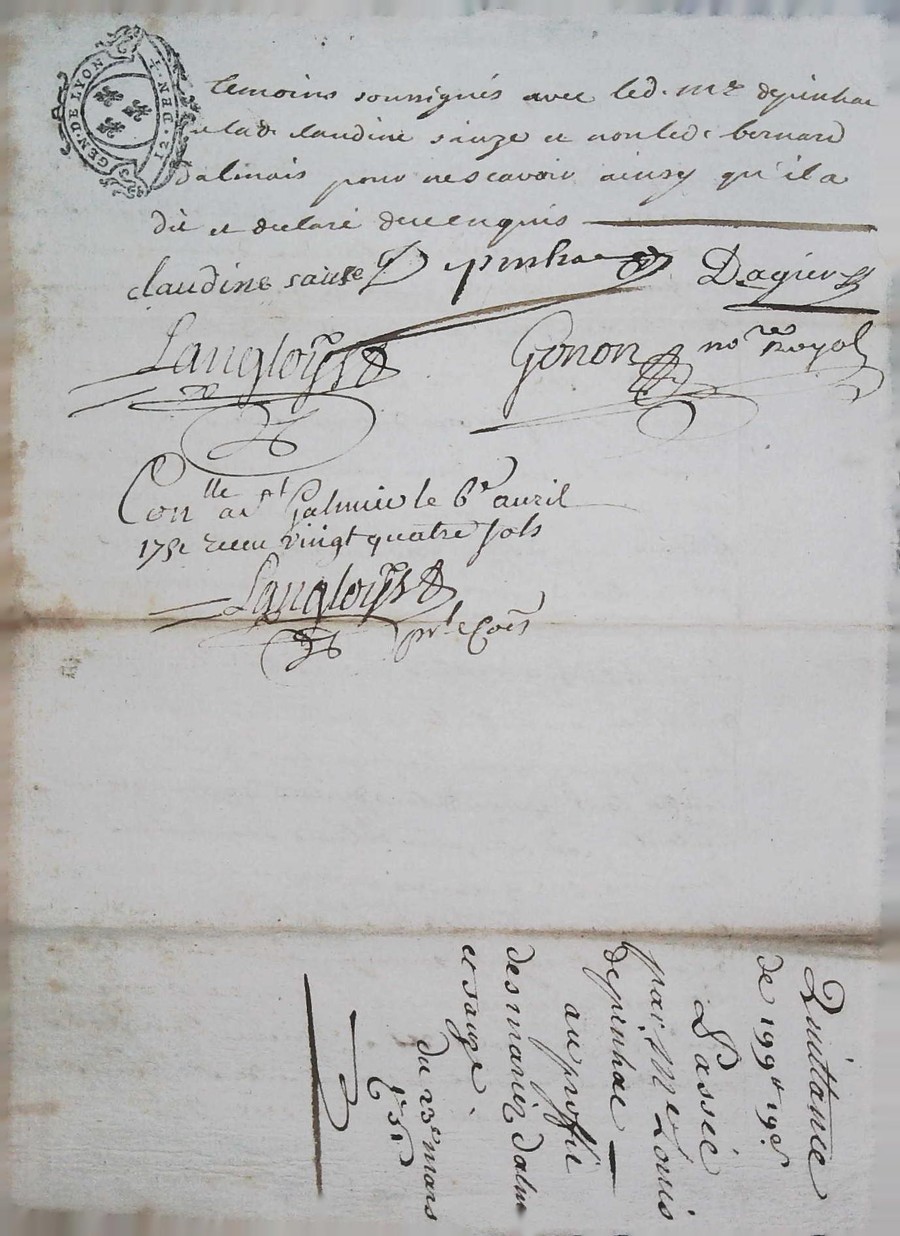 GEN. DE LYON
12. DEN. T
temoins soussignés avec led. mr depinhac
et lad. claudine sauze et non led. bernard
dalmais pour ne scavoir ainsy qu'il a
dit et declaré de ce enquis
claudine sause Depinhac Dagier
Langloys Gonon nore Royal
Conlle a st Galmier le 6e avril
175 receu vingt quatre sols
Langloys
pr le Cois
Quittance
de 199lt 19s
Passée
par Me Louis
depinhac
au profit
des mariez dalm
et sauze.
du 23e mars